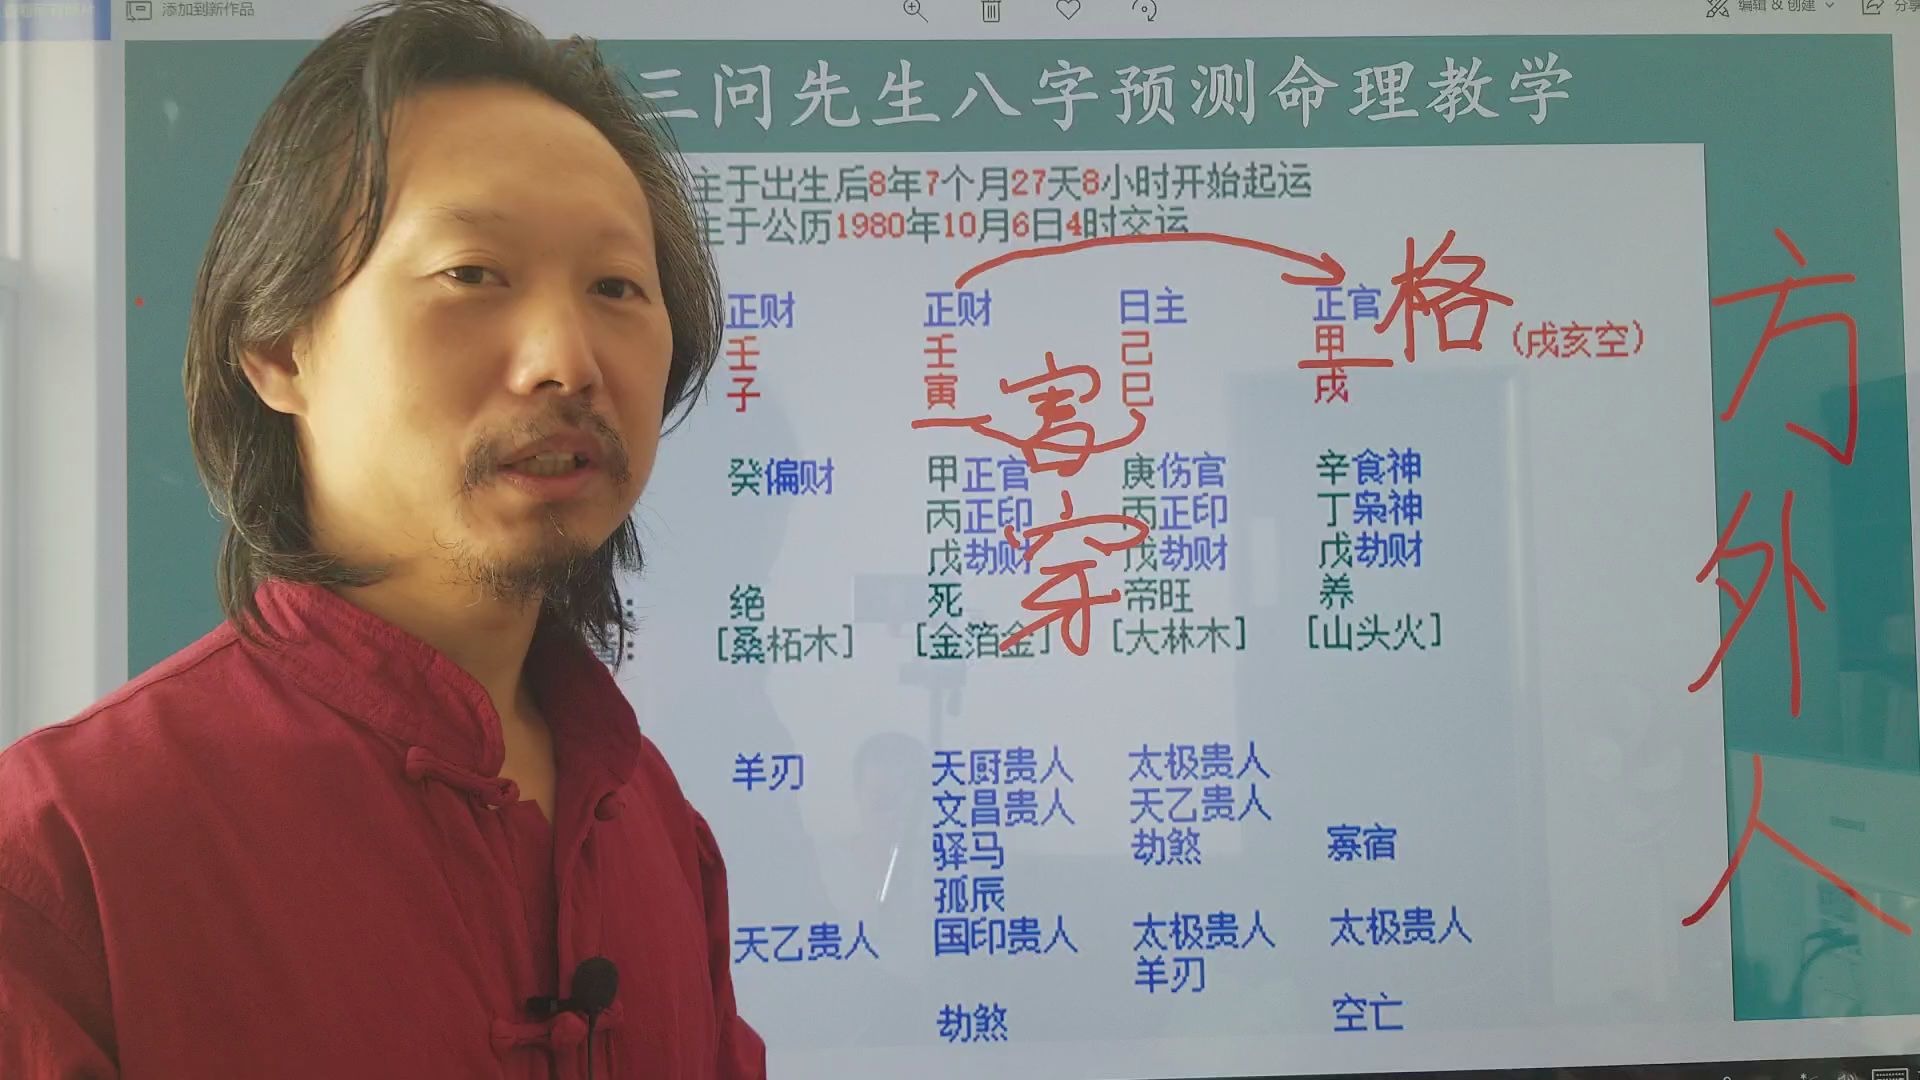 添加到新作品
编辑 & 创建
分享
三问先生八字预测命理教学
主于出生后8年7个月27天8小时开始起运
主于公历1980年10月6日4时交运
正财 正财 日主 正官 格
壬 壬 己 甲 (戌亥空)
子 寅 巳 戌
害
穿
癸偏财 甲正官 庚伤官 辛食神
丙正印 丙正印 丁枭神
戊劫财 戊劫财 戊劫财
绝 死 帝旺 养
[桑柘木] [金箔金] [大林木] [山头火]
羊刃 天厨贵人 太极贵人
文昌贵人 天乙贵人
驿马 劫煞 寡宿
孤辰
天乙贵人 国印贵人 太极贵人 太极贵人
羊刃
劫煞 空亡
方外人